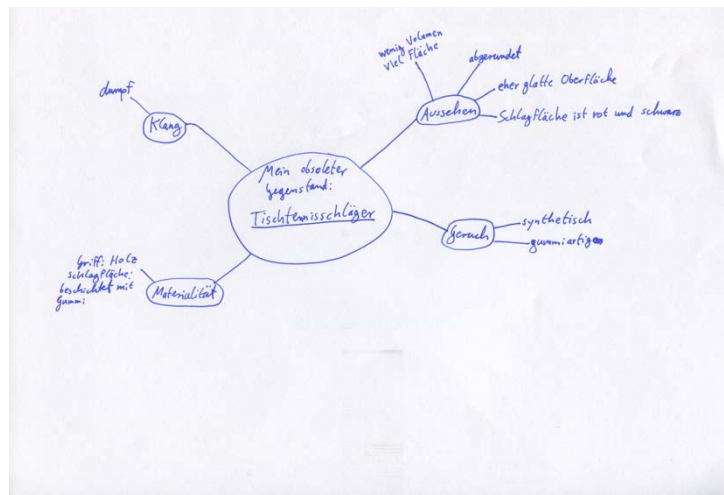 Mein obsoleter
Gegenstand:
Tischtennisschläger
Klang
dumpf
Aussehen
wenig Volumen
viel Fläche
abgerundet
eher glatte Oberfläche
Schlagfläche ist rot und schwarz
Geruch
synthetisch
gummiartig
Materialität
Griff: Holz
Schlagfläche:
beschichtet mit
Gummi